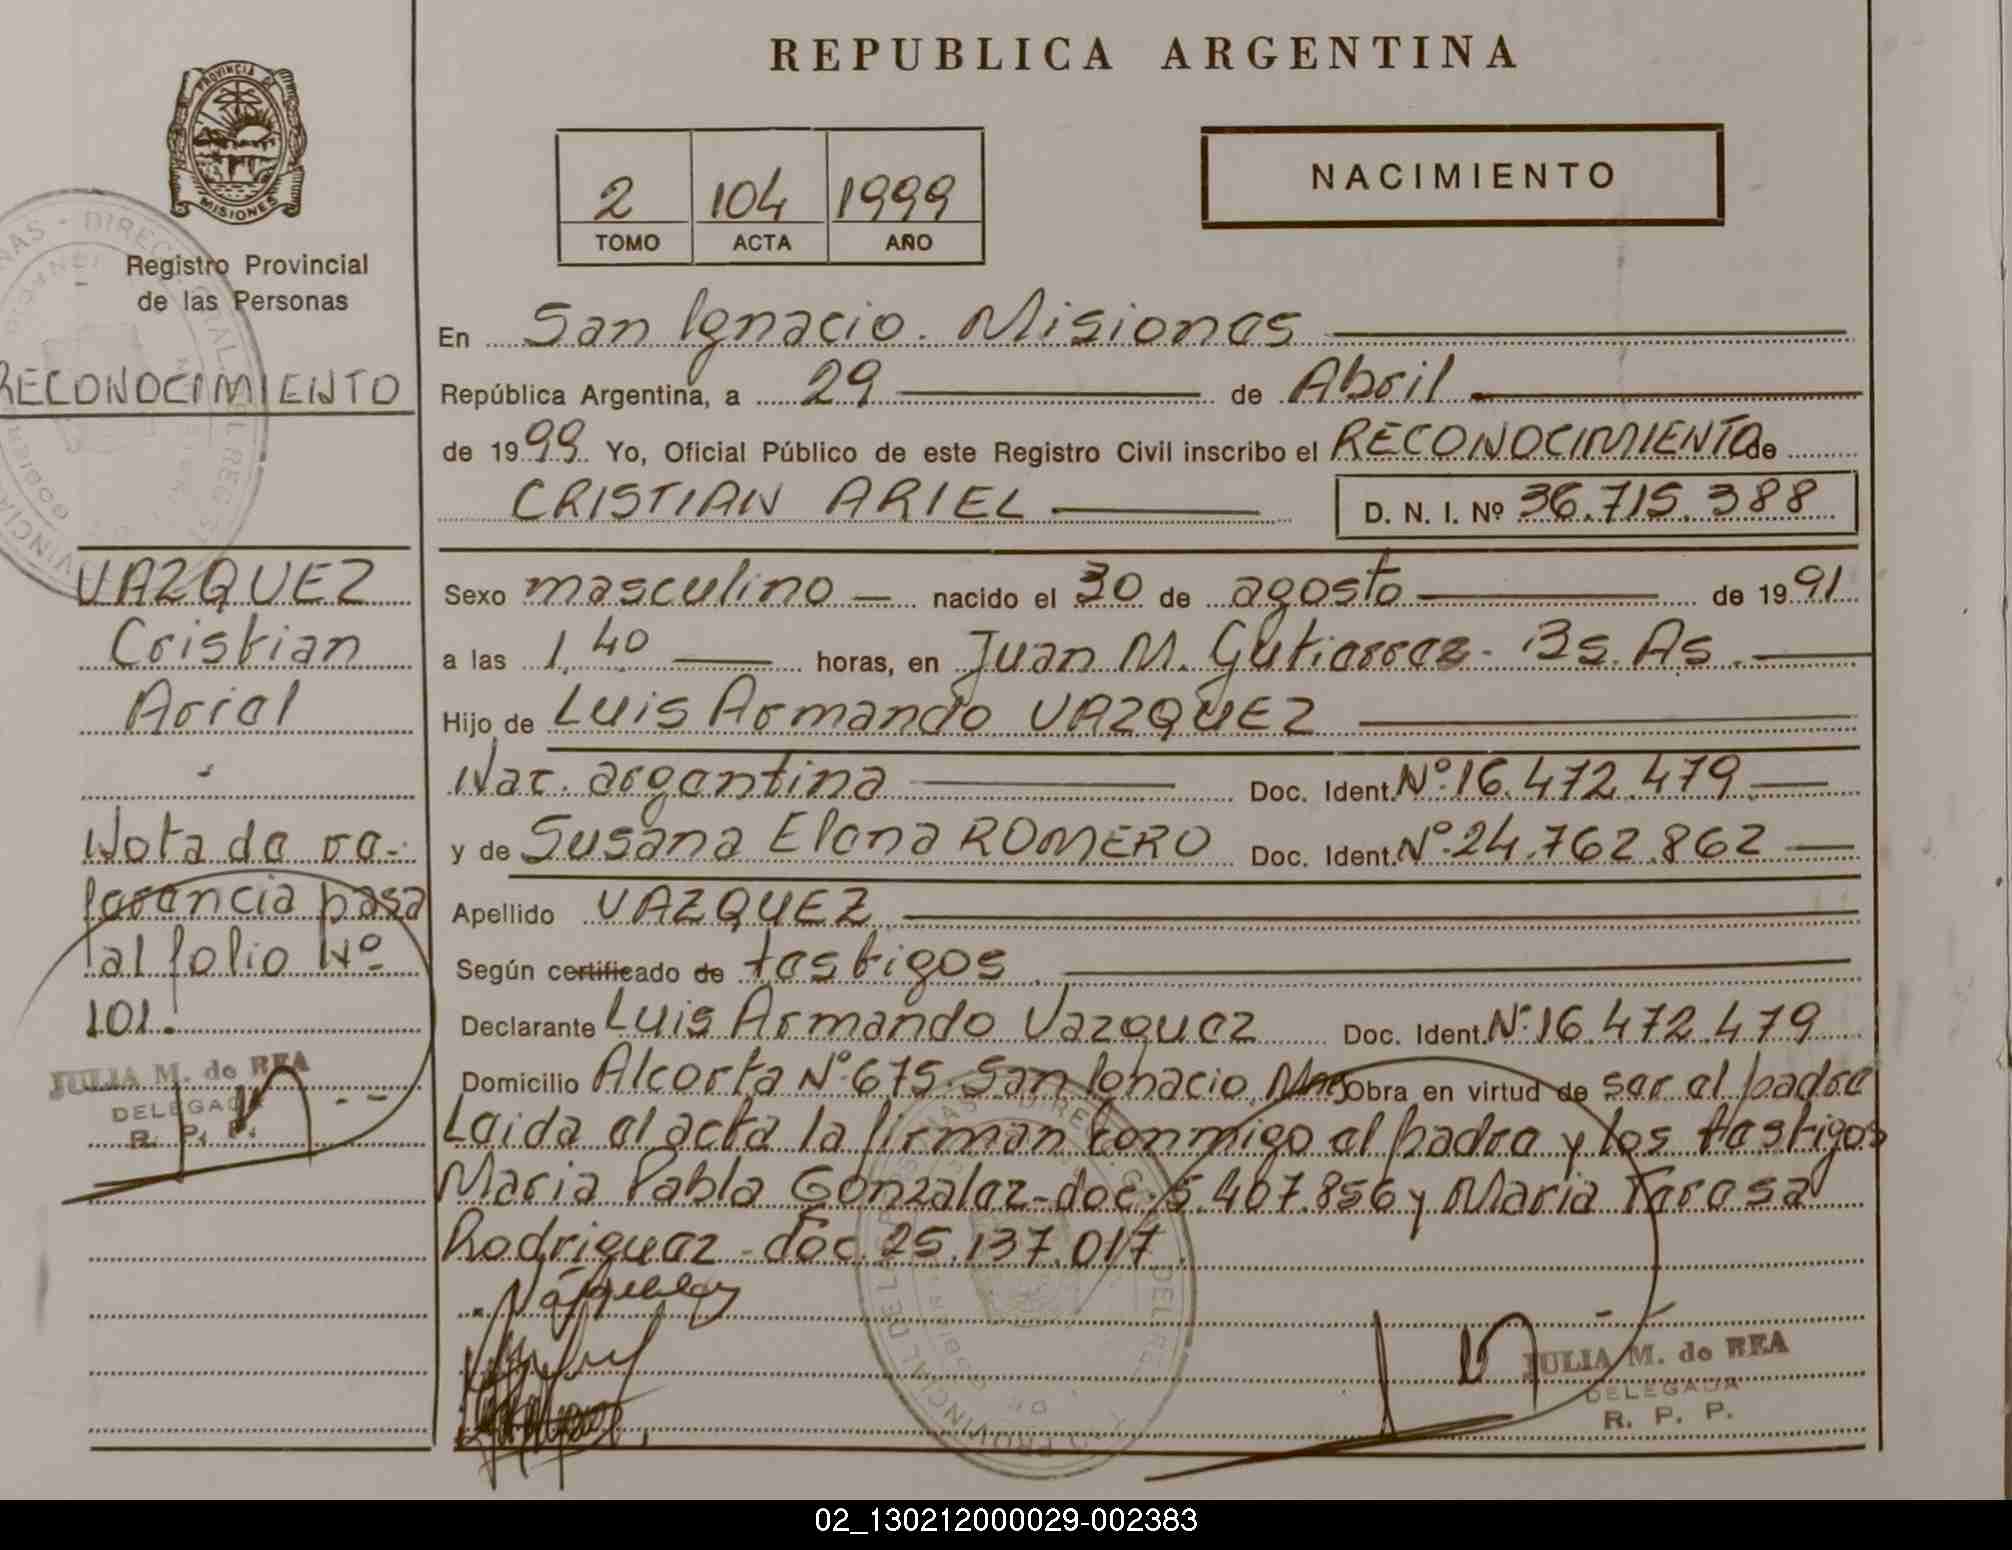 REPUBLICA ARGENTINA
PROVINCIA DE
MISIONES
Registro Provincial
de las Personas
NACIMIENTO
2 104 1999
TOMO ACTA AÑO
RECONOCIMIENTO
VAZQUEZ
Cristian
Ariel
Nota de re-
ferencia pasa
al folio Nº
101.
JULIA M. de REA
DELEGADA
R. P. P.
En San Ignacio. Misiones
República Argentina, a 29 de Abril
de 1999 Yo, Oficial Público de este Registro Civil inscribo el RECONOCIMIENTO de
CRISTIAN ARIEL D. N. I. Nº 36.715.388
Sexo masculino nacido el 30 de agosto de 1991
a las 1,40 horas, en Juan M. Gutierrez - Bs. As.
Hijo de Luis Armando VAZQUEZ
Nac. argentina Doc. Ident. Nº 16.472.479
y de Susana Elena ROMERO Doc. Ident. Nº 24.762.862
Apellido VAZQUEZ
Según certificado de testigos
Declarante Luis Armando Vazquez Doc. Ident. Nº 16.472.479
Domicilio Alcorta Nº 675. San Ignacio, Mnes Obra en virtud de ser el padre
Leida el acta la firman conmigo el padre y los testigos
Maria Pabla Gonzalez - doc. 5.407.856 y Maria Teresa
Rodriguez - doc. 25.137.017.
JULIA M. de REA
DELEGADA
R. P. P.
02_130212000029-002383